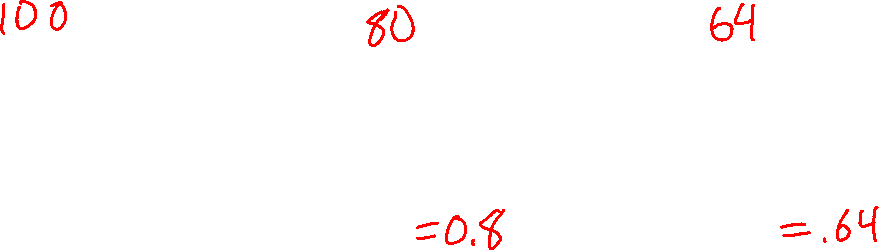 100 80 64
=0.8 =.64